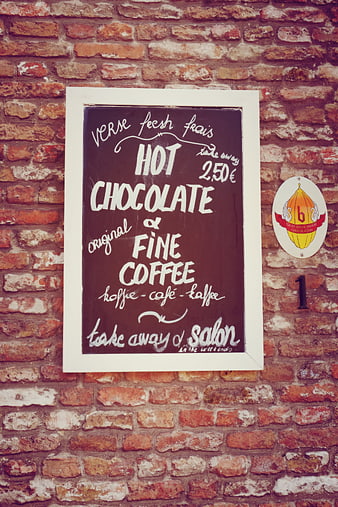 verse fresh frais
HOT
take away
2,50€
CHOCOLATE
&
original
FINE
COFFEE
koffie - café - kaffee
take away & salon
in the weekends
b